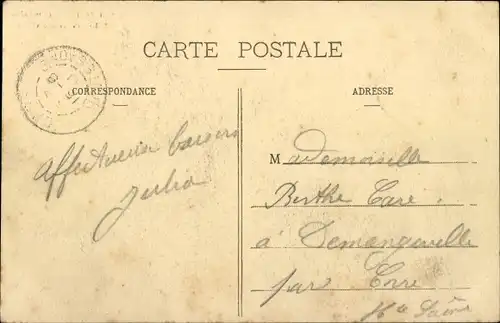 CARTE POSTALE
CORRESPONDANCE
ADRESSE
Affectueux baisers
Julia
Mademoiselle
Berthe Caré
à Demangevelle
par Corre
Hte Saône